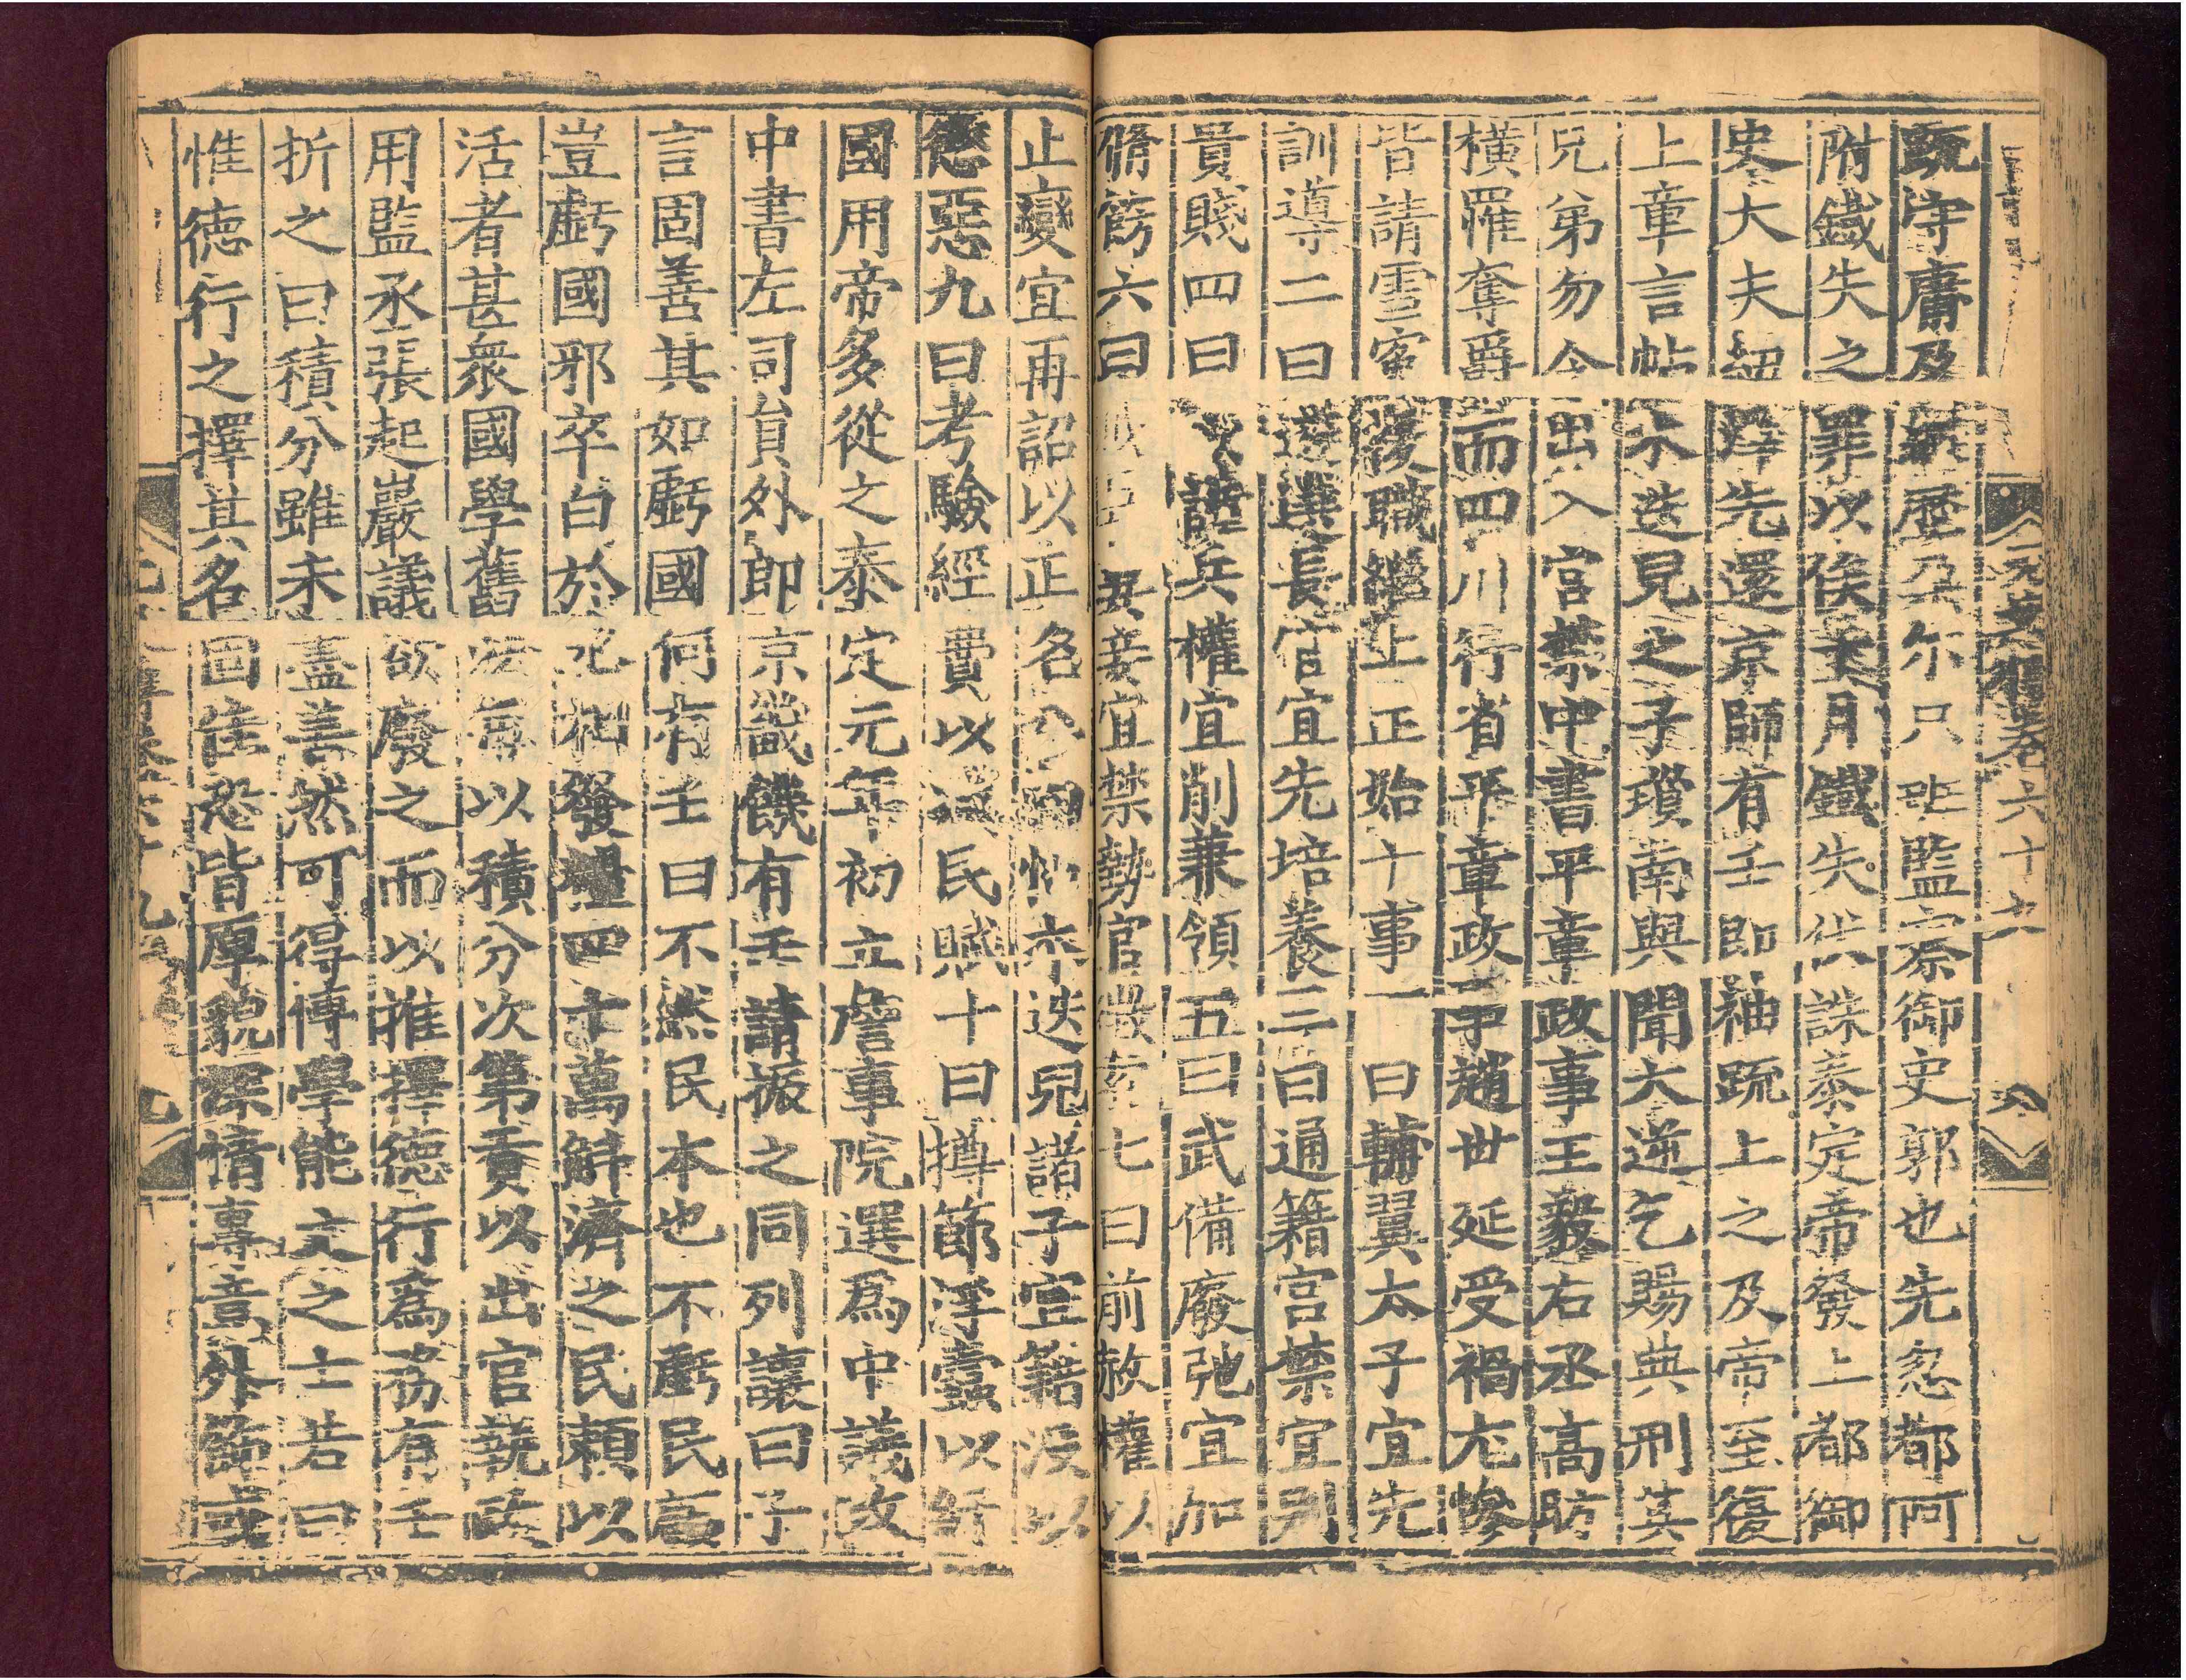 元史列傳卷六十九
八
疏守庸及經歷朶尔只班監察御史郭也先忽都阿
附鐵失之罪以俟月鐵失伏誅泰定帝發上都御
史大夫紐澤先還京師有壬即袖疏上之及帝至復
上章言帖木迭兒之子瑣南與聞大逆乞賜典刑其
兄弟勿令出入宮禁中書平章政事王毅右丞高昉
橫罹奪爵而四川行省平章政事趙世延受禍尤慘
皆請雪寃復職繼上正始十事一曰輔翼太子宜先
訓導二曰遴選長官宜先培養三曰通籍宮禁宜別
貴賤四曰欲謹兵權宜削兼領五曰武備廢弛宜加
脩飭六曰賊臣妻妾宜禁勢官徵索七曰前赦權以
止變宜再詔以正名八曰鐵木迭兒諸子宜籍沒以
懲惡九曰考驗經費以減民賦十曰撙節浮蠹以紓
國用帝多從之泰定元年初立詹事院選爲中議改
中書左司員外郎京畿饑有壬請振之同列讓曰子
言固善其如虧國何有壬曰不然民本也不虧民顧
豈虧國邪卒白於丞相發糧四十萬斛濟之民賴以
活者甚衆國學舊法每以積分次第貢以出官執政
用監丞張起巖議欲廢之而以推擇德行爲務有壬
折之曰積分雖未盡善然可得博學能文之士若曰
惟德行之擇其名固佳恐皆厚貌深情專意外飾或
傳卷六十九
九